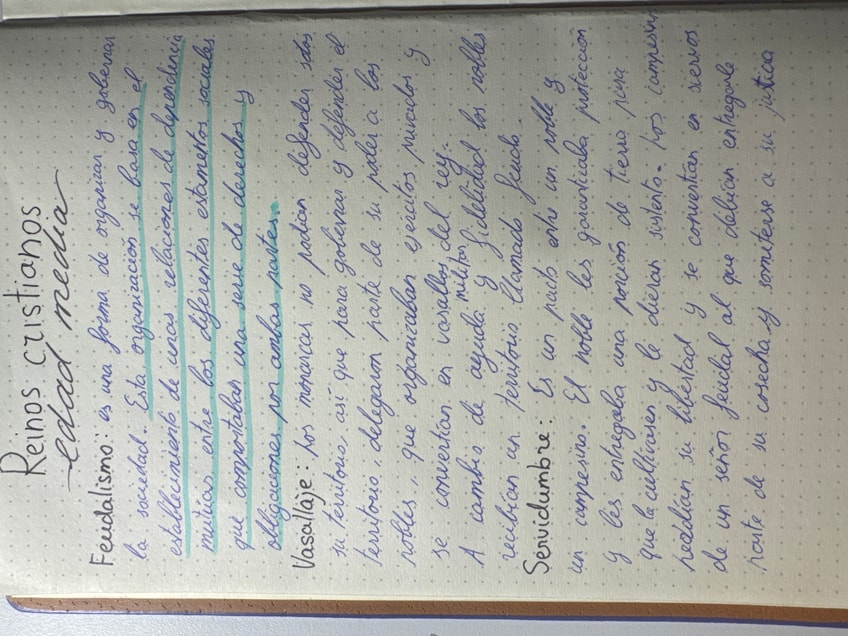 Reinos cristianos
edad media
Feudalismo: es una forma de organizar y gobernar
la sociedad. Esta organización se basa en el
establecimiento de unas relaciones de dependencia
mutuas entre los diferentes estamentos sociales
que comportaban una serie de derechos y
obligaciones por ambas partes.
Vasallaje: Los monarcas no podían defender solos
su territorio, así que para gobernar y defender el
territorio, delegaron parte de su poder a los
nobles, que organizaban ejércitos privados y
se convertían en vasallos del rey.
A cambio de ayuda militar y fidelidad los nobles
recibían un territorio llamado feudo.
Servidumbre: Es un pacto entre un noble y
un campesino. El noble les garantizaba protección
y les entregaba una porción de tierra para
que la cultivasen y le dieran sustento. Los campesinos
perdían su libertad y se convertían en siervos
de un señor feudal al que debían entregarle
parte de su cosecha y someterse a su justicia